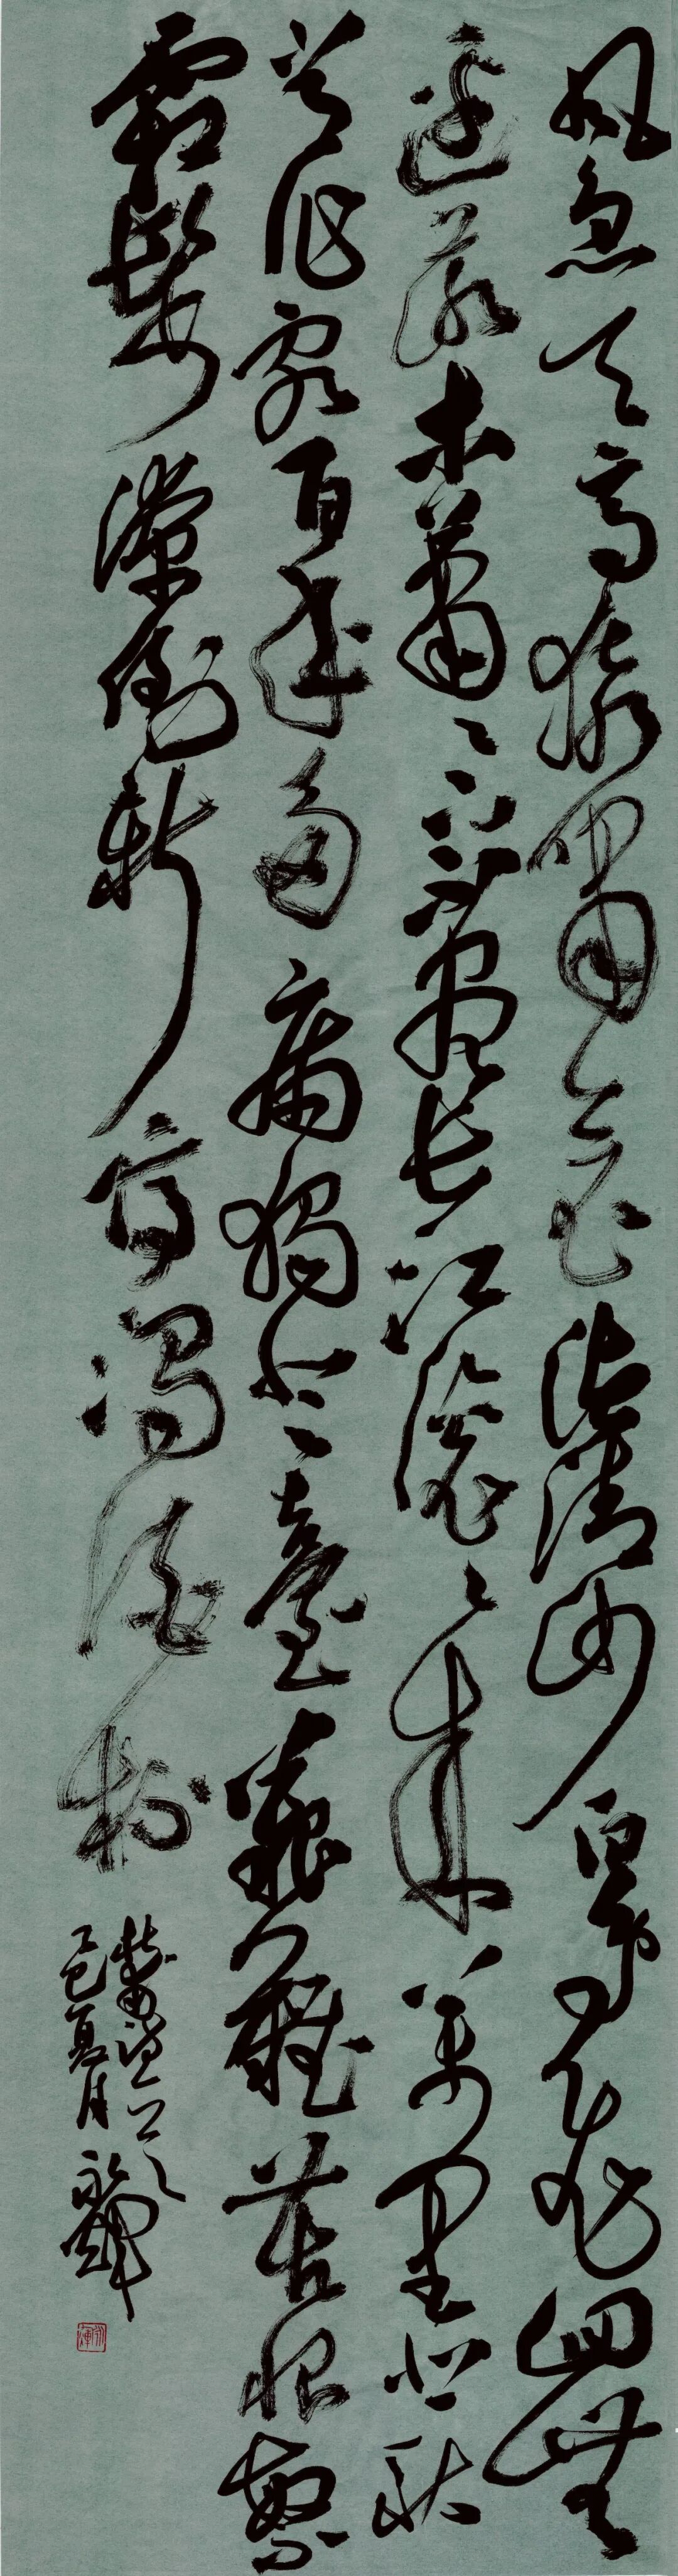 風急天高猿嘯哀渚清沙白鳥飛迴無
邊落木蕭〻下不盡長江滾〻来萬里悲秋
常作客百年多病獨登臺艱難苦恨繁
霜鬢潦倒新停濁酒杯
杜甫詩一首
乙巳夏月永輝